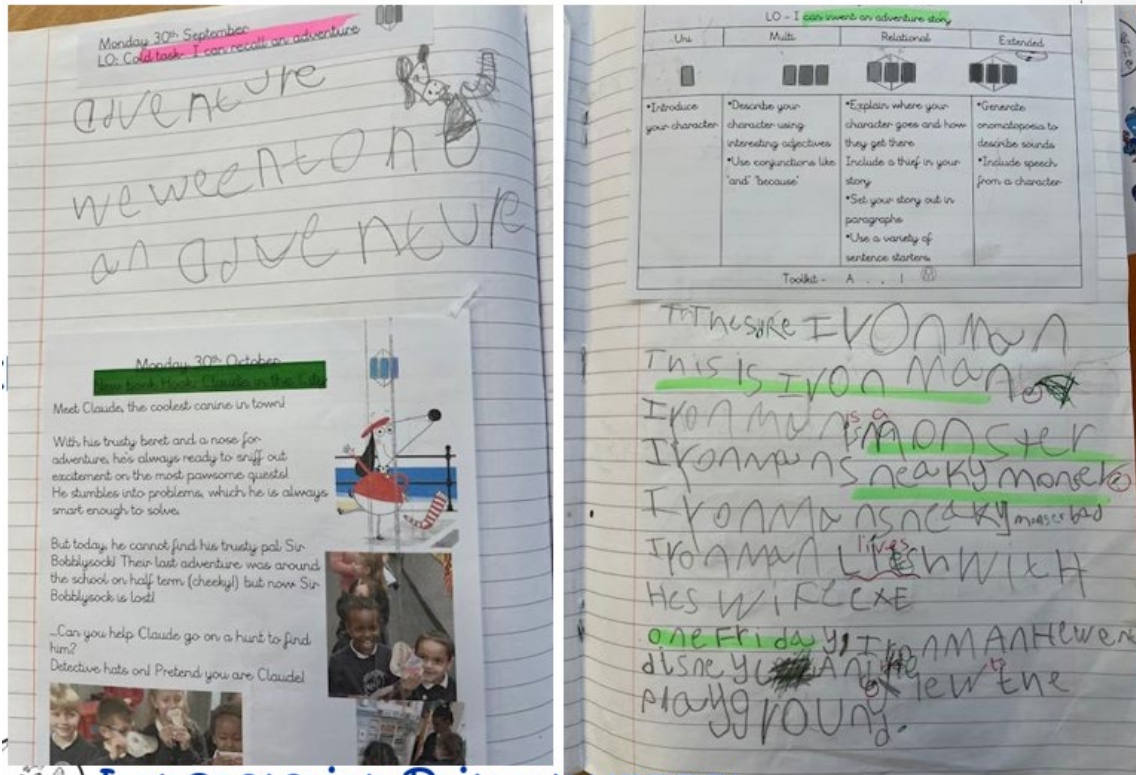 Monday 30th September
LO: Cold task- I can recall an adventure
adventure
we weent on
an adventure
Monday 30th October
New book Hook: Claude in the City
Meet Claude, the coolest canine in town!
With his trusty beret and a nose for
adventure, he's always ready to sniff out
excitement on the most pawsome quests!
He stumbles into problems, which he is always
smart enough to solve.
But today, he cannot find his trusty pal Sir
Bobblysock! Their last adventure was around
the school on half term (cheeky!) but now Sir
Bobblysock is lost!
...Can you help Claude go on a hunt to find
him?
Detective hats on! Pretend you are Claude!
LO - I can invent an adventure story
Uni Multi Relational Extended
•Introduce
your character
•Describe your
character using
interesting adjectives
•Use conjunctions like
'and' 'because'
•Explain where your
character goes and how
they get there
Include a thief in your
story
•Set your story out in
paragraphs
•Use a variety of
sentence starters
•Generate
onomatopoeia to
describe sounds
•Include speech
from a character
Toolkit - A . , I
Iron Man
This is Iron Man
Iron man is a monster
Iron man sneaky monster
Iron Man sneaky monser bad
Iron man lives with
Hes wife
one Friday, Iron MAn He went
disney AnD he flew to the
playgground.